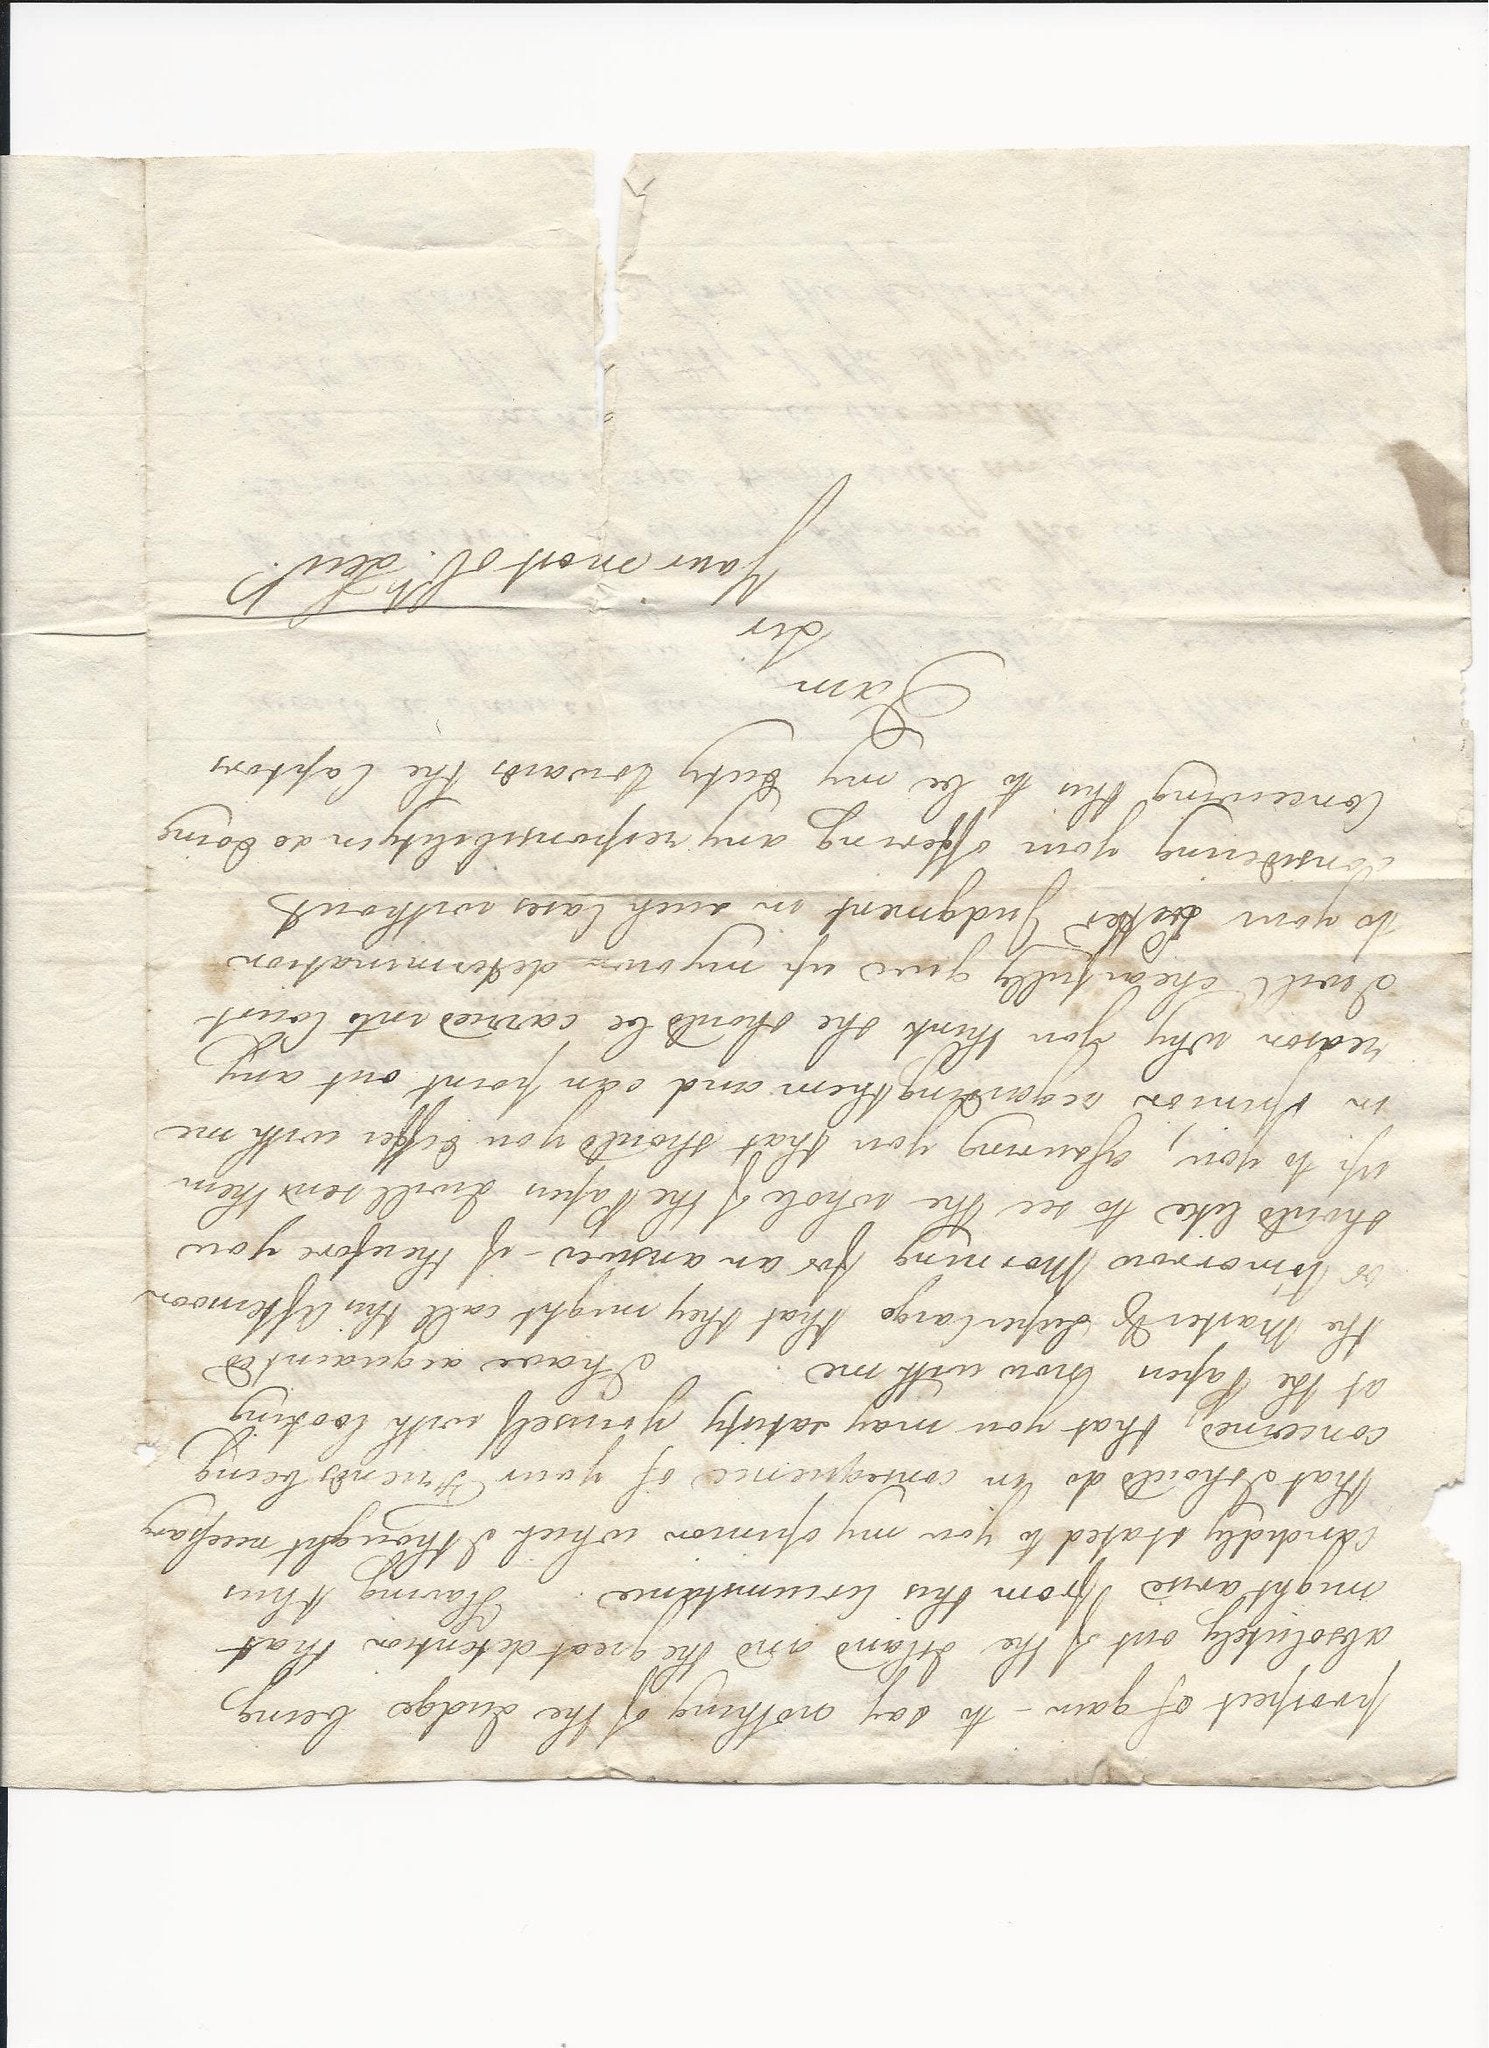 prospect of gain - to say nothing of the Judge being
absolutely out of the Island and the great detention that
might arise from this Circumstance. Having thus
candidly stated to you my opinion which I thought necessary
that I should do in consequence of your Friends being
concerned, that you may satisfy yourself with looking
at the Papers now with me. I have acquainted
the Master & Supercargo that they might call this Afternoon
or Tomorrow Morning for an answer - if therefore you
should like to see the whole of the Papers I will send them
up to you, assuring you that should you differ with me
in opinion regarding them and can point out any
reason why you think she should be carried into Court
I will cheerfully give up my own determination
to your better Judgment in such Cases without
considering your offering any responsibility in so doing
Conceiving this to be my duty towards the Captors
I am
Sir
Your most Ob. Serv.